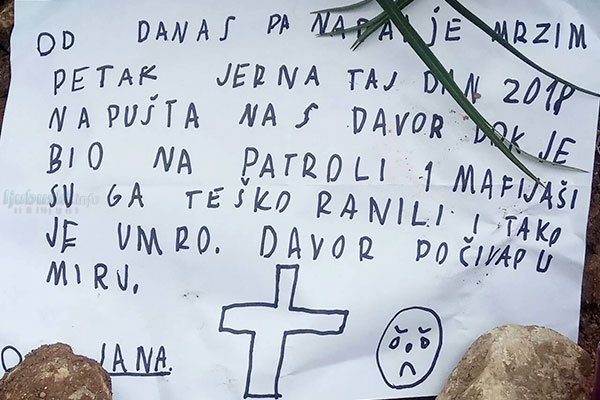 OD DANAS PA NAPADJE MRZIM
PETAK JERNA TAJ DAN 2018
NAPUŠTA NAS DAVOR DOK JE
BIO NA PATROLI 1 MAFIJAŠI
SU GA TEŠKO RANILI I TAKO
JE UMRO. DAVOR POČIVAP U
MIRJ.
JANA.
ljubuski.info